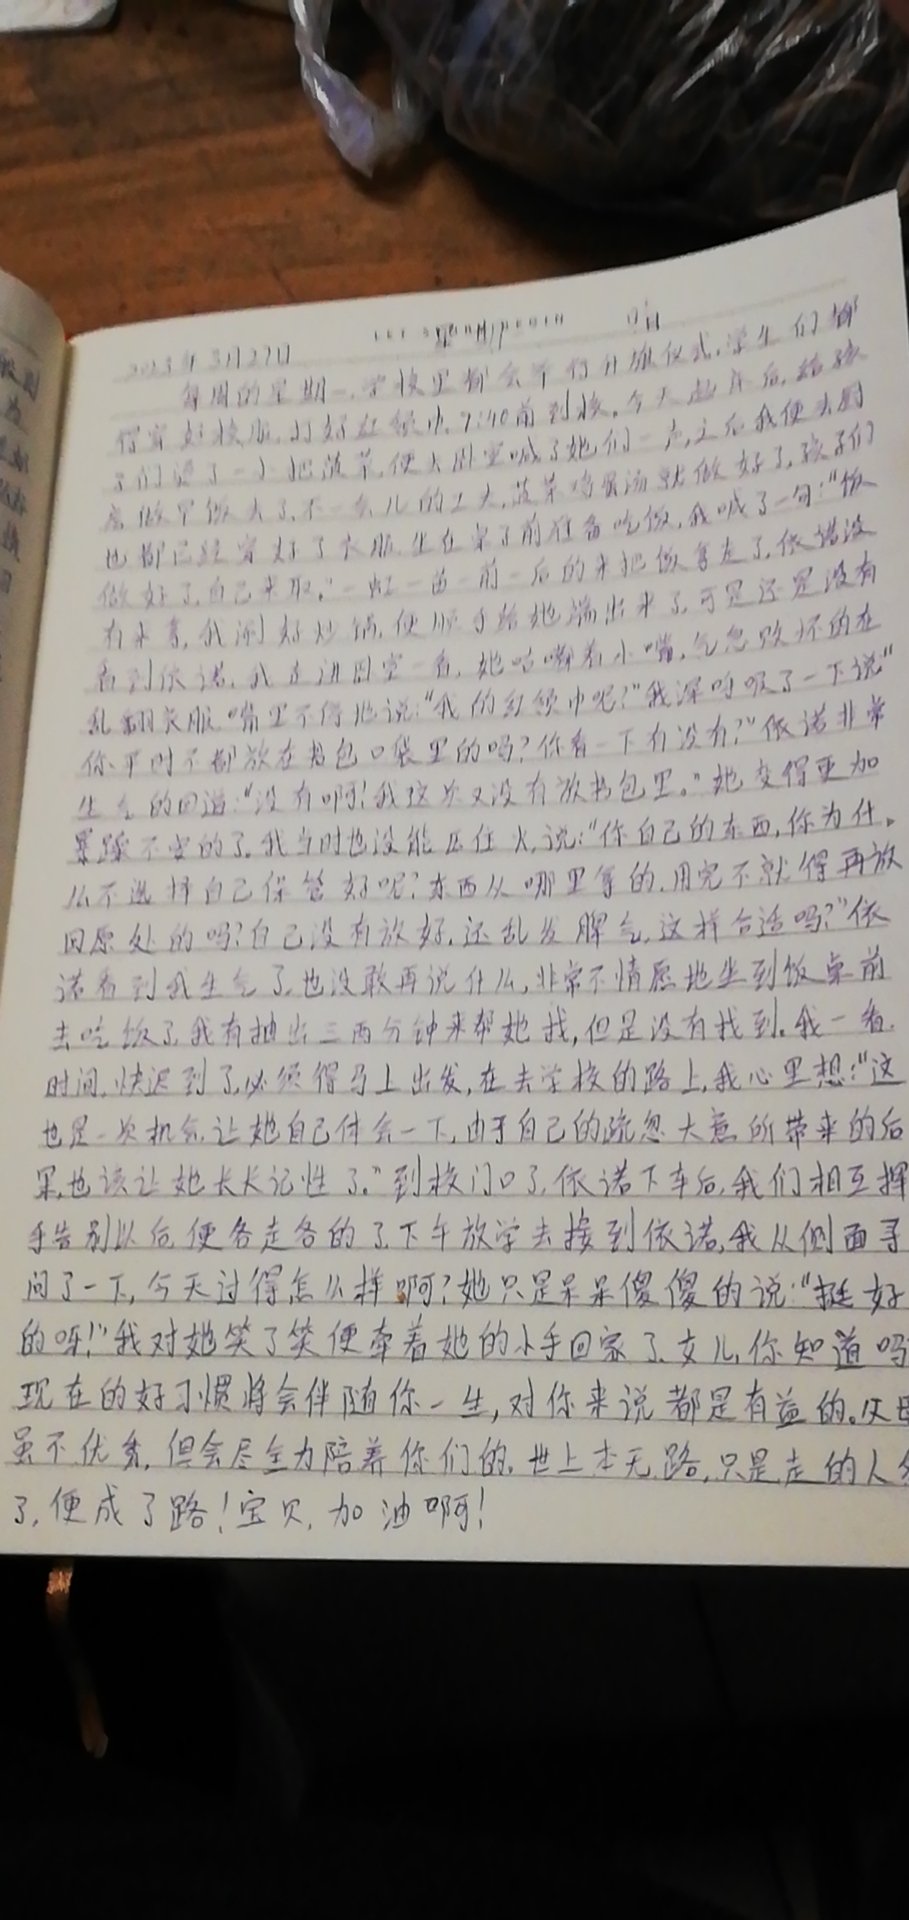 2023年3月27日 星期一 晴
每周的星期一,学校里都会举行升旗仪式,学生们都
得穿好校服,打好红领巾,7:40前到校。今天起床后,给孩
子们烫了一小把菠菜,便去卧室喊了她们一声,之后我便去厨
房做早饭去了,不一会儿的工夫,菠菜鸡蛋汤就做好了,孩子们
也都已经穿好了衣服,坐在桌子前准备吃饭,我喊了一句:“饭
做好了,自己来取。”一虹一茁一前一后的来把饭拿走了,依诺没
有来拿,我涮好炒锅,便顺手给她端出来了,可是还是没有
看到依诺,我走进卧室一看,她咕嘟着小嘴,气急败坏的在
乱翻衣服,嘴里不停地说:“我的红领巾呢?”我深呼吸了一下说“
你平时不都放在书包口袋里的吗?你看一下有没有?”依诺非常
生气的回道:“没有啊!我这次又没有放书包里。”她变得更加
暴躁不安的了,我当时也没能压住火,说:“你自己的东西,你为什
么不选择自己保管好呢?东西从哪里拿的,用完不就得再放
回原处的吗?自己没有放好,还乱发脾气,这样合适吗?”依
诺看到我生气了,也没敢再说什么,非常不情愿地坐到饭桌前
去吃饭了,我有抽出三两分钟来帮她找,但是没有找到。我一看
时间,快迟到了,必须得马上出发,在去学校的路上,我心里想:“这
也是一次机会,让她自己体会一下,由于自己的疏忽大意所带来的后
果,也该让她长长记性了。”到校门口了,依诺下车后,我们相互挥
手告别以后,便各走各的了,下午放学去接到依诺,我从侧面寻
问了一下,今天过得怎么样啊?她只是呆呆傻傻的说:“挺好
的呀!”我对她笑了笑便牵着她的小手回家了,女儿,你知道吗
现在的好习惯将会伴随你一生,对你来说都是有益的。父母
虽不优秀,但会尽全力陪养你们的,世上本无路,只是走的人多
了,便成了路!宝贝,加油啊!